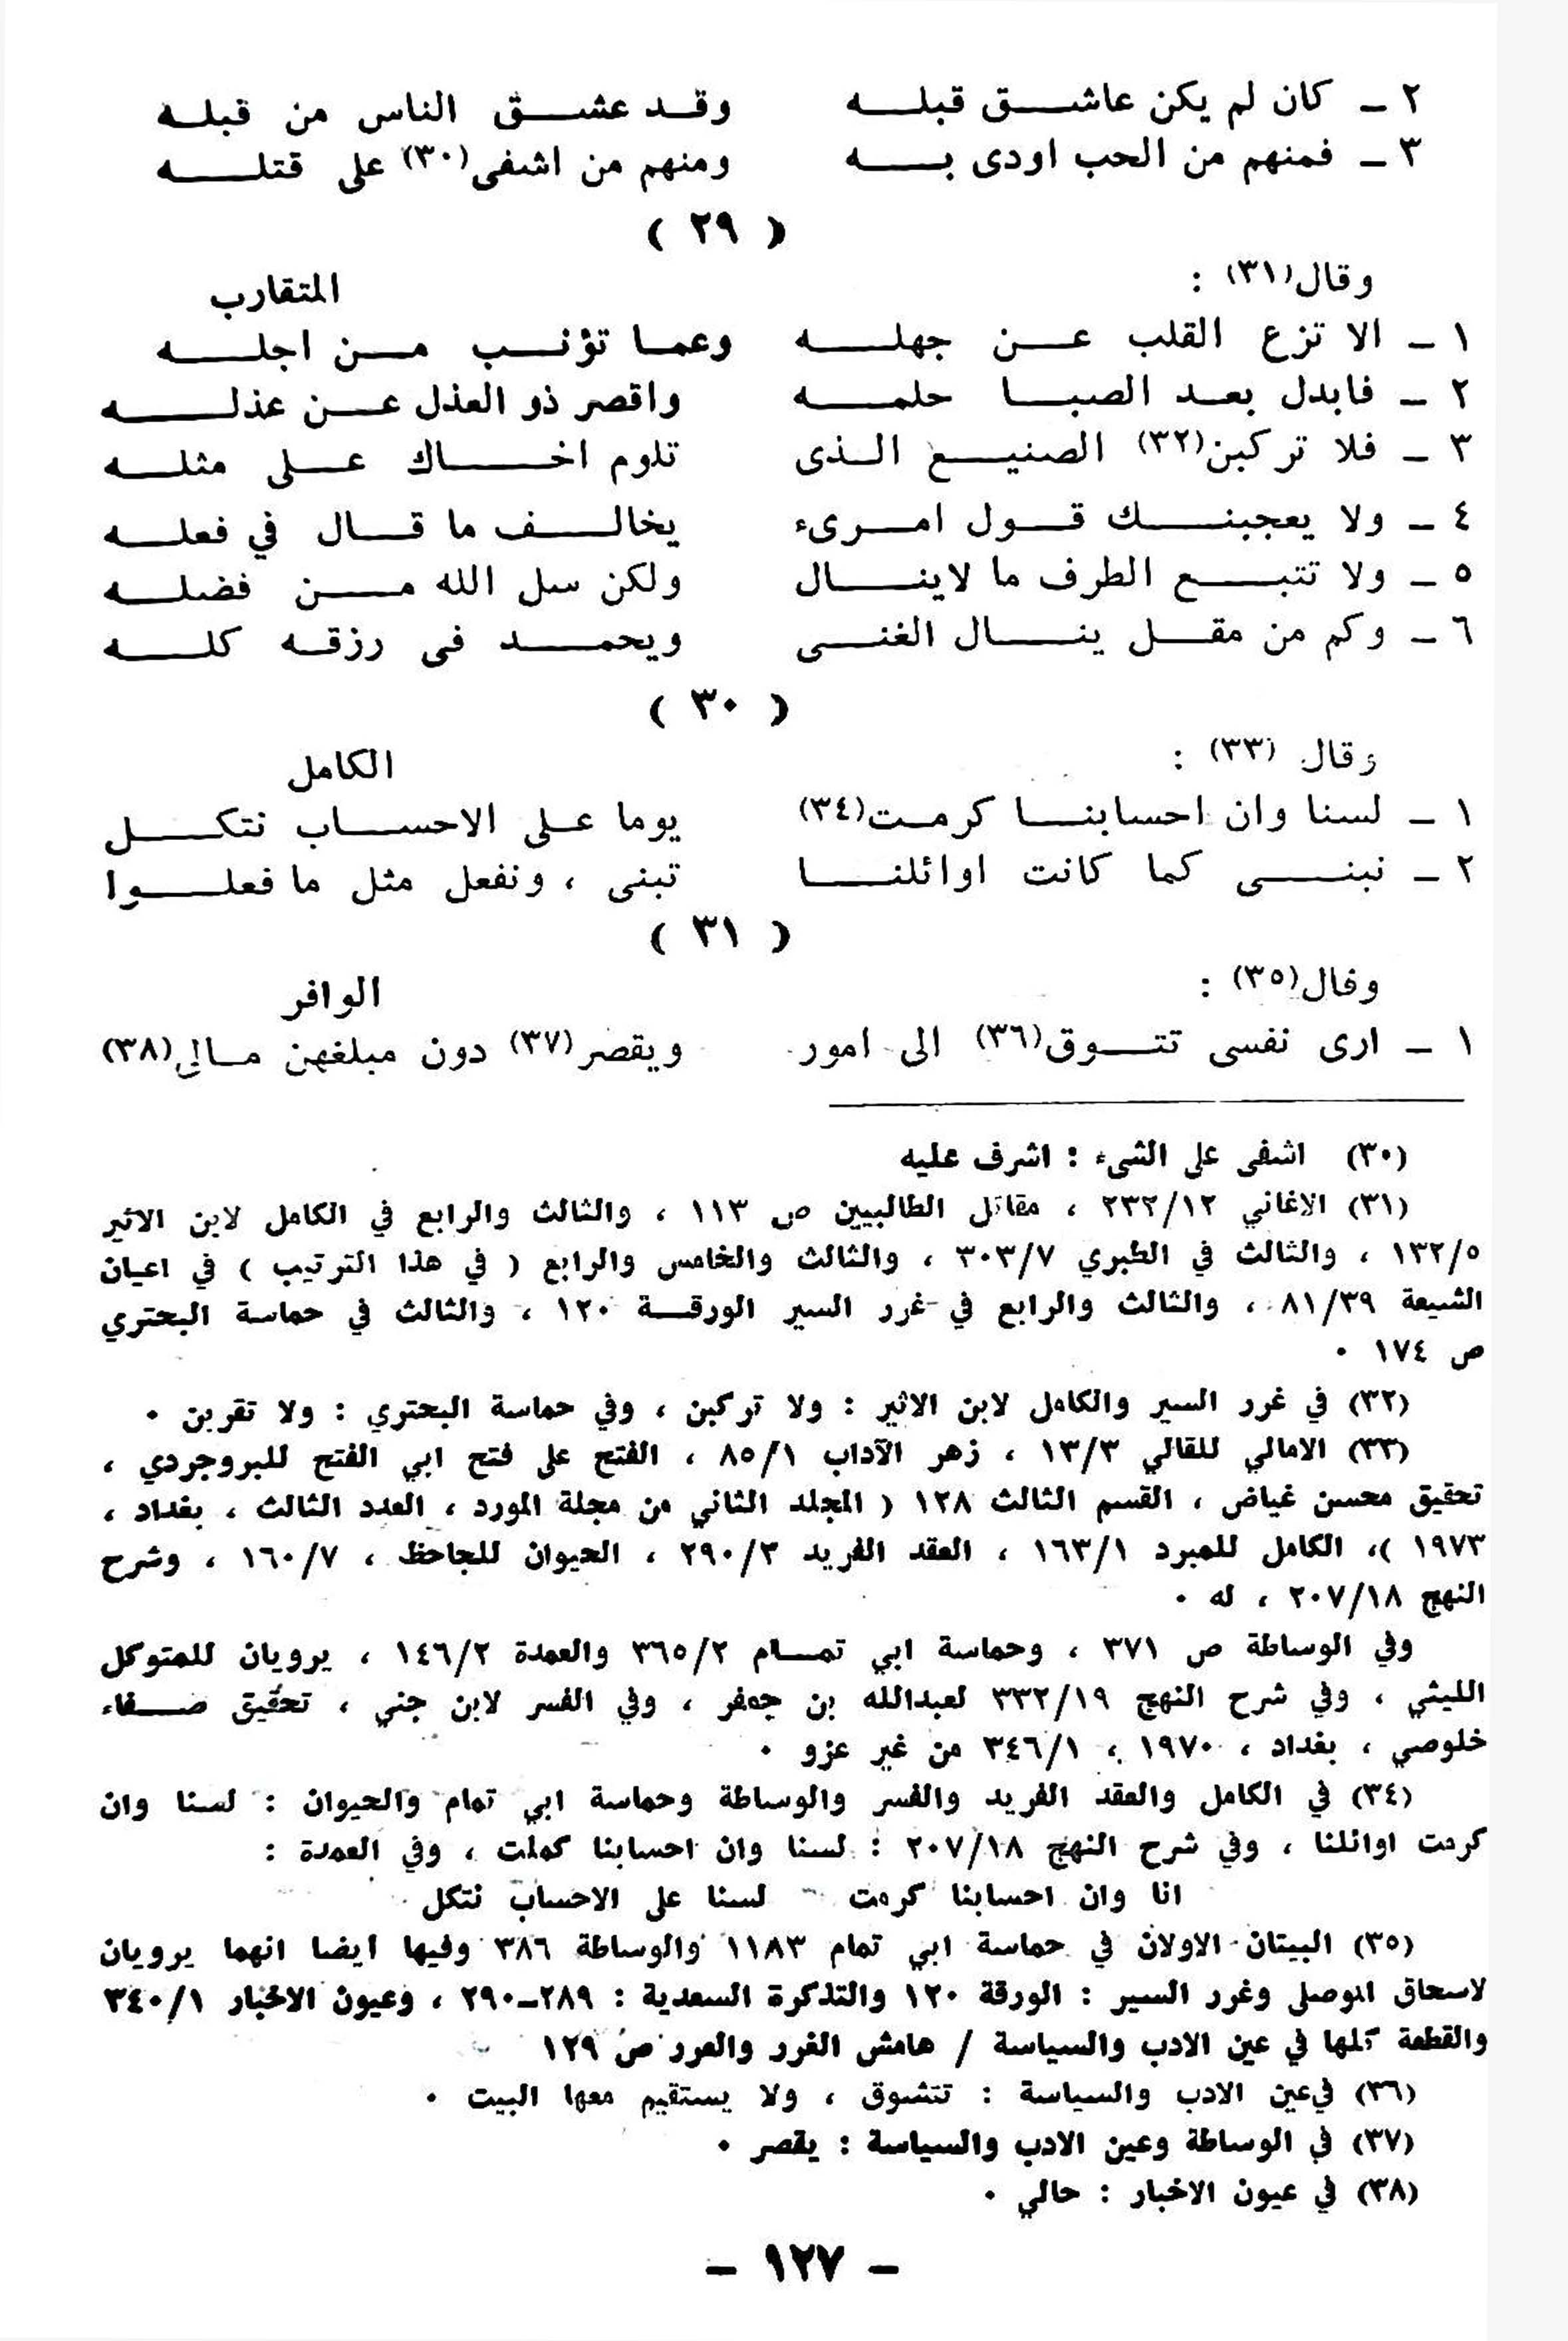 ٢ ـ كان لم يكن عاشـــق قبلـــه وقـد عشـــق الناس من قبلـه
٣ ـ فمنهم من الحب اودى بـــه ومنهم من اشفى(٣٠) على قتلـــه
( ٢٩ )
وقال(٣١) :
المتقارب
١ ـ الا تزع القلب عـــن جهلـــه وعمـا تؤنـــب مـــن اجلـــه
٢ ـ فابدل بعـد الصبـــا حلمـــه واقصر ذو العذل عـــن عذلـــه
٣ ـ فلا تركبن(٣٢) الصنيـــع الـذى تلوم اخـــاك عـــلى مثلـــه
٤ ـ ولا يعجبنـــك قـــول امـــرىء يخالـــف ما قـــال في فعلـــه
٥ ـ ولا تتبـــع الطرف ما لاينـــال ولكن سل الله مـــن فضلـــه
٦ ـ وكم من مقـــل ينـــال الغنـــى ويحمـــد فى رزقـه كلـــه
( ٣٠ )
وقال (٣٣) :
الكامل
١ ـ لسنا وان احسابنـــا كرمـت(٣٤) يوما عـلى الاحســـاب نتكـــل
٢ ـ نبنـــى كما كانت اوائلنـــا تبنى ، ونفعل مثل ما فعلـــوا
( ٣١ )
وقال(٣٥) :
الوافر
١ ـ ارى نفسى تتـــوق(٣٦) الى امور ويقصر(٣٧) دون مبلغهن مـالى(٣٨)
(٣٠) اشفى على الشىء : اشرف عليه
(٣١) الاغاني ٢٣٢/١٢ ، مقاتل الطالبيين ص ١١٣ ، والثالث والرابع في الكامل لابن الاثير
١٣٢/٥ ، والثالث في الطبري ٣٠٣/٧ ، والثالث والخامس والرابع ( في هذا الترتيب ) في اعيان
الشيعة ٨١/٣٩ ، والثالث والرابع في غرر السير الورقـــة ١٢٠ ، والثالث في حماسة البحتري
ص ١٧٤ ٠
(٣٢) في غرر السير والكامل لابن الاثير : ولا تركبن ، وفي حماسة البحتري : ولا تقربن ٠
(٣٣) الامالي للقالي ١٣/٣ ، زهر الآداب ٨٥/١ ، الفتح على فتح ابي الفتح للبروجردي ،
تحقيق محسن غياض ، القسم الثالث ١٢٨ ( المجلد الثاني من مجلة المورد ، العدد الثالث ، بغداد ،
١٩٧٣ )، الكامل للمبرد ١٦٣/١ ، العقد الفريد ٢٩٠/٢ ، الحيوان للجاحظ ، ١٦٠/٧ ، وشرح
النهج ٢٠٧/١٨ ، له ٠
وفي الوساطة ص ٣٧١ ، وحماسة ابي تمـــام ٣٦٥/٢ والعمدة ١٤٦/٢ ، يرويان للمتوكل
الليثي ، وفي شرح النهج ٣٣٢/١٩ لعبدالله بن جعفر ، وفي الفسر لابن جني ، تحقيق صـــفاء
خلوصي ، بغداد ، ١٩٧٠ ، ٣٤٦/١ من غير عزو ٠
(٣٤) في الكامل والعقد الفريد والفسر والوساطة وحماسة ابي تمام والحيوان : لسنا وان
كرمت اوائلنا ، وفي شرح النهج ٢٠٧/١٨ : لسنا وان احسابنا كملت ، وفي العمدة :
انا وان احسابنا كرمت لسنا على الاحساب نتكل
(٣٥) البيتان الاولان في حماسة ابي تمام ١١٨٣ والوساطة ٣٨٦ وفيها ايضا انهما يرويان
لاسحاق الموصلى وغرر السير : الورقة ١٢٠ والتذكرة السعدية : ٢٨٩ـ٢٩٠ ، وعيون الاخبار ٣٤٠/١
والقطعة كلها في عين الادب والسياسة / هامش الغرر والعرر ص ١٢٩
(٣٦) في عين الادب والسياسة : تتشوق ، ولا يستقيم معها البيت ٠
(٣٧) في الوساطة وعين الادب والسياسة : يقصر ٠
(٣٨) في عيون الاخبار : حالي ٠
ـ ١٢٧ ـ